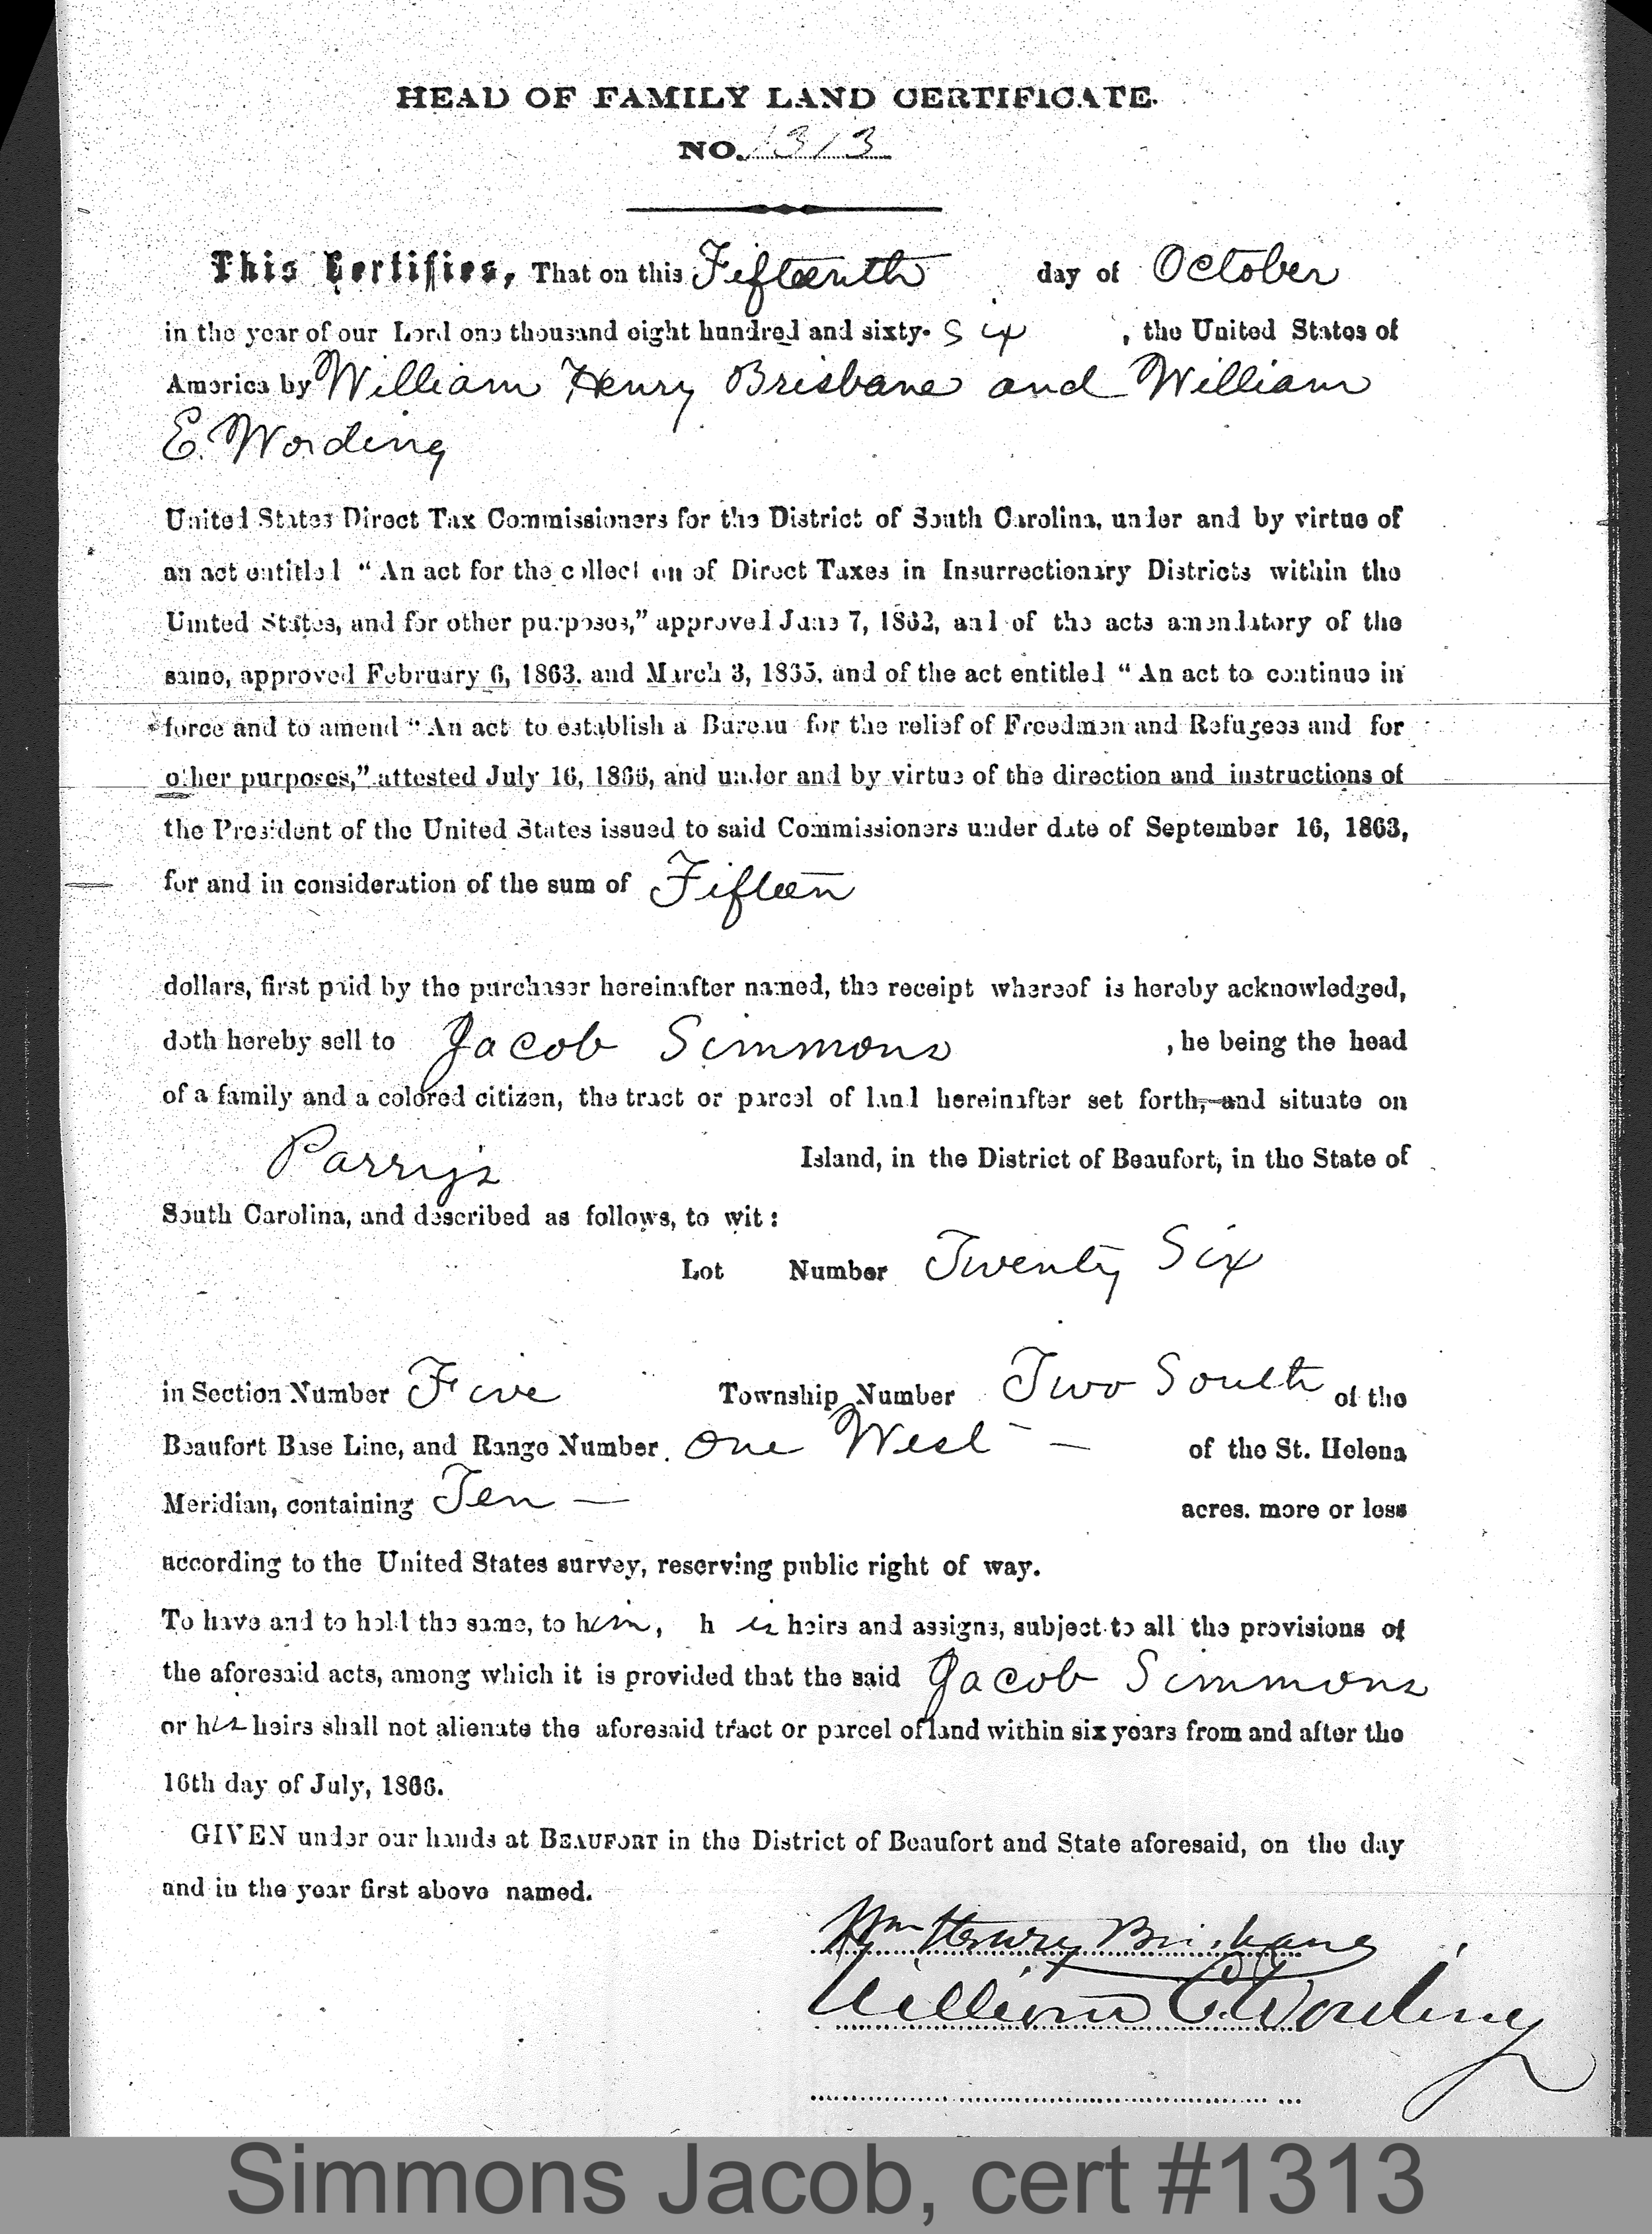 HEAD OF FAMILY LAND CERTIFICATE.
NO. 1313
This Certifies, That on this Fifteenth day of October
in the year of our Lord one thousand eight hundred and sixty-six, the United States of
America by William Henry Brisbane and William
E. Wording
United States Direct Tax Commissioners for the District of South Carolina, under and by virtue of
an act entitled "An act for the collection of Direct Taxes in Insurrectionary Districts within the
United States, and for other purposes," approved June 7, 1862, and of the acts amendatory of the
same, approved February 6, 1863. and March 3, 1865. and of the act entitled "An act to continue in
force and to amend "An act to establish a Bureau for the relief of Freedmen and Refugees and for
other purposes," attested July 16, 1866, and under and by virtue of the direction and instructions of
the President of the United States issued to said Commissioners under date of September 16, 1863,
for and in consideration of the sum of Fifteen
dollars, first paid by the purchaser hereinafter named, the receipt whereof is hereby acknowledged,
doth hereby sell to Jacob Simmons, he being the head
of a family and a colored citizen, the tract or parcel of land hereinafter set forth, and situate on
Parry's Island, in the District of Beaufort, in the State of
South Carolina, and described as follows, to wit:
Lot Number Twenty Six
in Section Number Five Township Number Two South of the
Beaufort Base Line, and Range Number One West — of the St. Helena
Meridian, containing Ten — acres. more or less
according to the United States survey, reserving public right of way.
To have and to hold the same, to him, his heirs and assigns, subject to all the provisions of
the aforesaid acts, among which it is provided that the said Jacob Simmons
or his heirs shall not alienate the aforesaid tract or parcel of land within six years from and after the
16th day of July, 1866.
GIVEN under our hands at BEAUFORT in the District of Beaufort and State aforesaid, on the day
and in the year first above named.
Wm Henry Brisbane
William E. Wording
Simmons Jacob, cert #1313